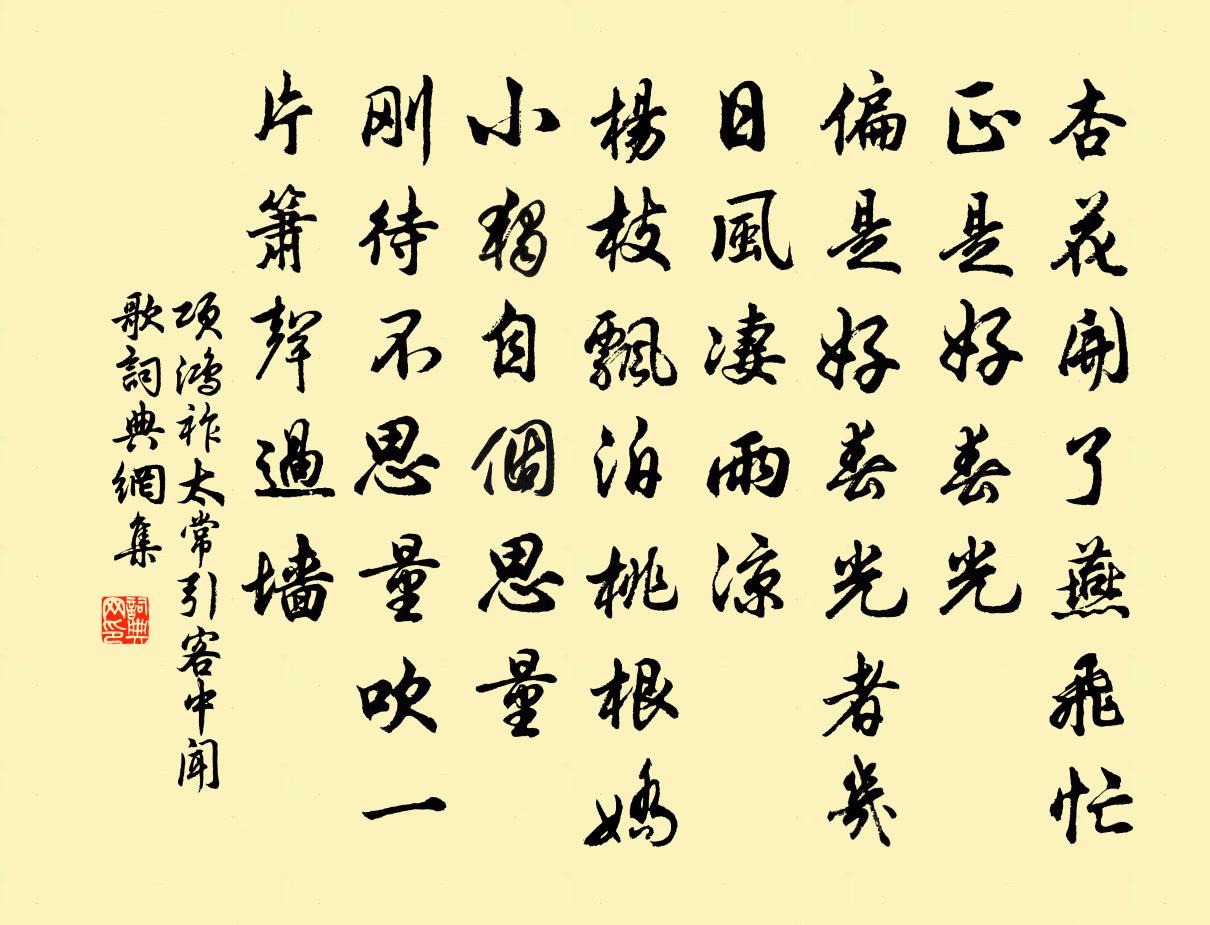 杏花開了燕飛忙
正是好春光
偏是好春光者幾
日風凄雨涼
楊枝飄泊桃根嬌
小獨自個思量
刚待不思量吹一
片簫聲過墙
項鴻祚太常引客中聞
歌詞典網集
詞典网印